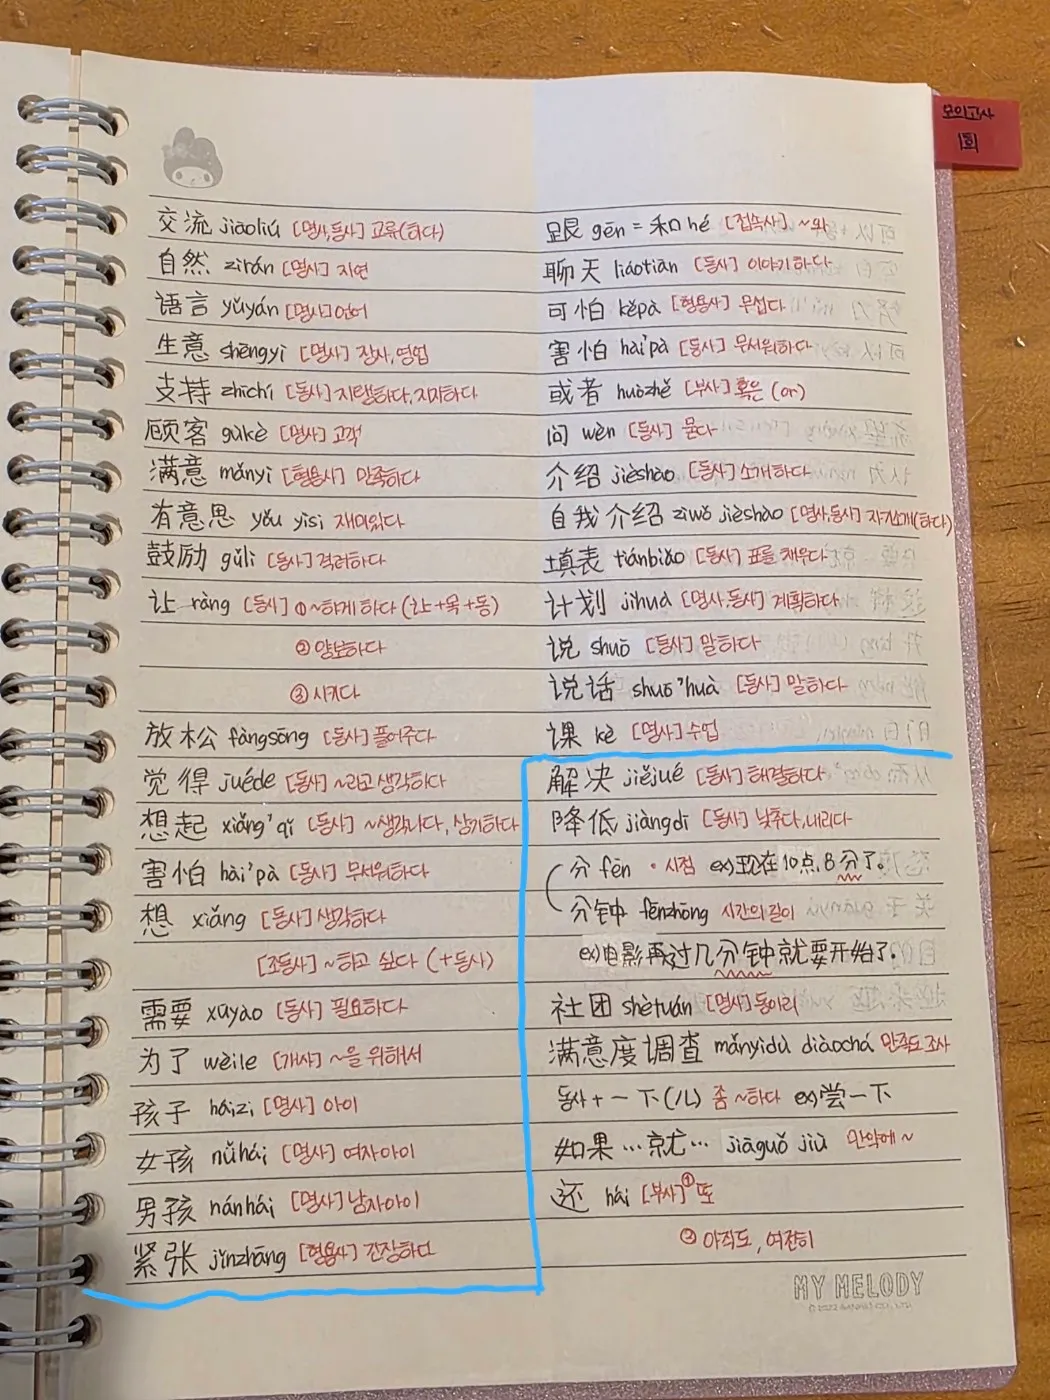 모의고사
1회
交流 jiāoliú [명사,동사] 교류(하다)
自然 zìrán [명사] 자연
语言 yǔyán [명사] 언어
生意 shēngyì [명사] 장사, 영업
支持 zhīchí [동사] 지탱하다, 지지하다
顾客 gùkè [명사] 고객
满意 mǎnyì [형용사] 만족하다
有意思 yǒu yìsi 재미있다
鼓励 gǔlì [동사] 격려하다
让 ràng [동사] ① ~하게 하다 (让+목+동)
② 양보하다
③ 시키다
放松 fàngsōng [동사] 풀어주다
觉得 juéde [동사] ~라고 생각하다
想起 xiǎng'qǐ [동사] ~생각나다, 상기하다
害怕 hài'pà [동사] 무서워하다
想 xiǎng [동사] 생각하다
[조동사] ~하고 싶다 (+동사)
需要 xūyào [동사] 필요하다
为了 wèile [개사] ~을 위해서
孩子 háizi [명사] 아이
女孩 nǚhái [명사] 여자아이
男孩 nánhái [명사] 남자아이
紧张 jǐnzhāng [형용사] 긴장하다
跟 gēn = 和 hé [접속사] ~와
聊天 liáotiān [동사] 이야기하다
可怕 kěpà [형용사] 무섭다
害怕 hài'pà [동사] 무서워하다
或者 huòzhě [부사] 혹은 (or)
问 wèn [동사] 묻다
介绍 jièshào [동사] 소개하다
自我介绍 zìwǒ jièshào [명사,동사] 자기소개(하다)
填表 tiánbiǎo [동사] 표를 채우다
计划 jìhuà [명사,동사] 계획하다
说 shuō [동사] 말하다
说话 shuō'huà [동사] 말하다
课 kè [명사] 수업
解决 jiějué [동사] 해결하다
降低 jiàngdī [동사] 낮추다, 내리다
分 fēn · 시점 ex) 现在 10点, 8分了。
分钟 fēnzhōng 시간의 길이
ex) 电影再过几分钟就要开始了。
社团 shètuán [명사] 동아리
满意度调查 mǎnyìdù diàochá 만족도 조사
동사 + 一下(儿) 좀 ~하다 ex) 尝一下
如果…就… jiāguǒ jiù 만약에 ~
还 hái [부사] ① 또
② 아직도, 여전히
MY MELODY